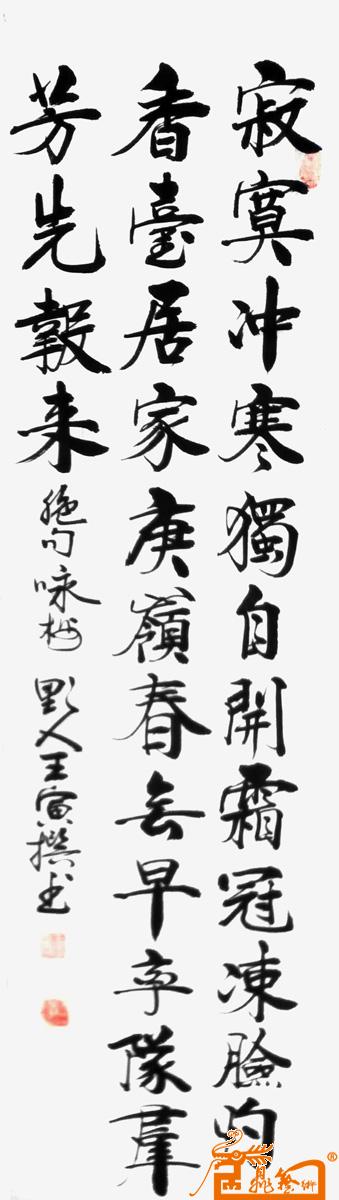 寂寞冲寒獨自開霜冠凍臉吻
香臺居家庚嶺春無早率隊羣
芳先報来 絶句咏梅 野人王寅撰書